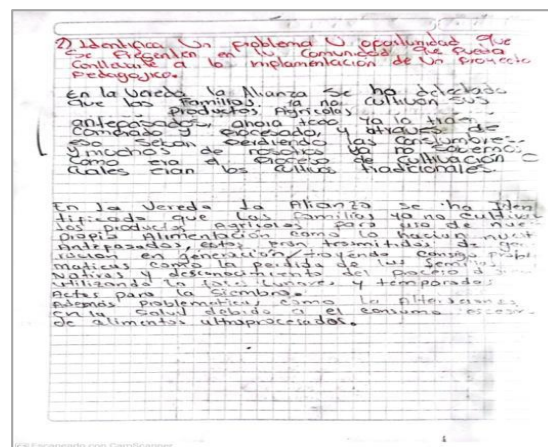 2) Identifica Un problema U oportunidad que
Se Presenten en tu Comunidad que pueda
Conllevar a la implementación de Un proyecto
Pedagógico.
En la Vereda la Alianza se ha detectado
que las Familias ya no cultivan sus
Productos Agricolas
antepasados, ahora todo ya lo traen
Comprado y procesado, y através de
eso Se han perdiendo las Constumbres
y muchos de nosotros ya no Sabemos
Como era el Proceso de Cultivación
Cuales eran los Cultivos tradicionales.
En la Vereda la Alianza se ha Iden
tificado que las familias ya no cultivan
los productos Agrícolas para uso de nues
propia Alimentación como lo hacian nuest
Antepasados, estos eran trasmitidos de gene
ración en generación/trayendo consigo proble
maticas como la perdida de las Semillas
Nativas y desconocimiento del proceso d
utilizando la fases Lunares y temporadas
Actas para la Siembra.
Además problematicas como la Alteraciones
en la Salud debido a el consumo
de alimentos ultraprocesados.
Escaneado con CamScanner